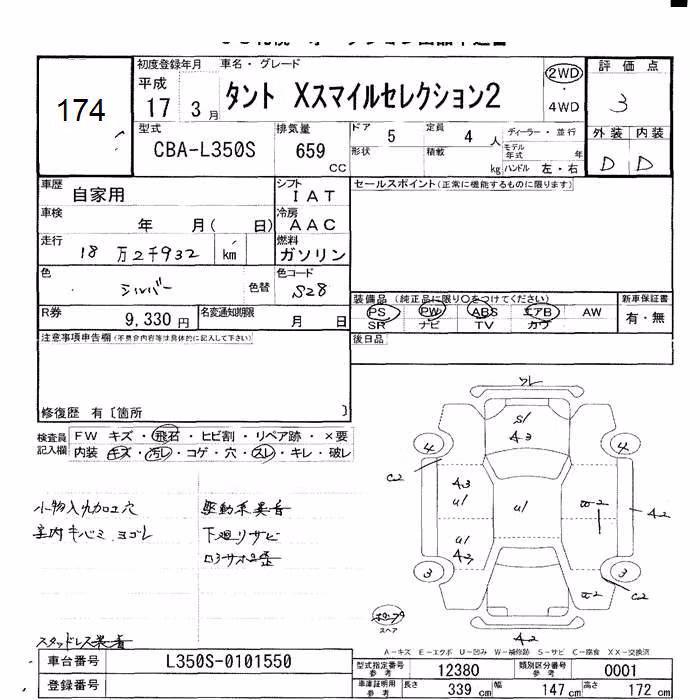 174
初度登録年月 車名・グレード
平成 17 3月 タント Xスマイルセレクション2 2WD・4WD
評価点 3
型式 CBA-L350S 排気量 659 CC
ドア 5 定員 4 人 ディーラー・並行
形状 積載 kg モデル年式 年 ハンドル 左・右
外装 内装
D D
車歴 自家用 シフト IAT
セールスポイント(正常に機能するものに限ります)
車検 年 月( 日) 冷房 AAC
走行 18万2千932 km 燃料 ガソリン
色 シルバー 色替 色コード S28
R券 9,330円 名変通知期限 月 日
装備品 (純正品に限り○をつけてください) 新車保証書
PS PW ABS エアB AW 有・無
SR ナビ TV カワ
注意事項申告欄(不具合内容等は具体的に記入して下さい)
後日品
修復歴 有〔箇所 〕
検査員記入欄 FW キズ・飛石・ヒビ割・リペア跡・×要
内装 キズ・汚レ・コゲ・穴・スレ・キレ・破レ
小物入力加工穴 駆動系異音
室内キバミ、ヨゴレ 下廻リサビ
ロッカ凹歪
スタッドレス装着
ワレ
S1
A3
4 4
C2
A3 U1 U1 A2
U1 A3
3 3
C2
A2
スペア
A-キズ E-エクボ U-凹み W-補修跡 S-サビ C-腐食 XX-交換済
車台番号 L350S-0101550
型式指定番号参考 12380 類別区分番号参考 0001
登録番号
車庫証明用参考 長さ 339 cm 幅 147 cm 高さ 172 cm